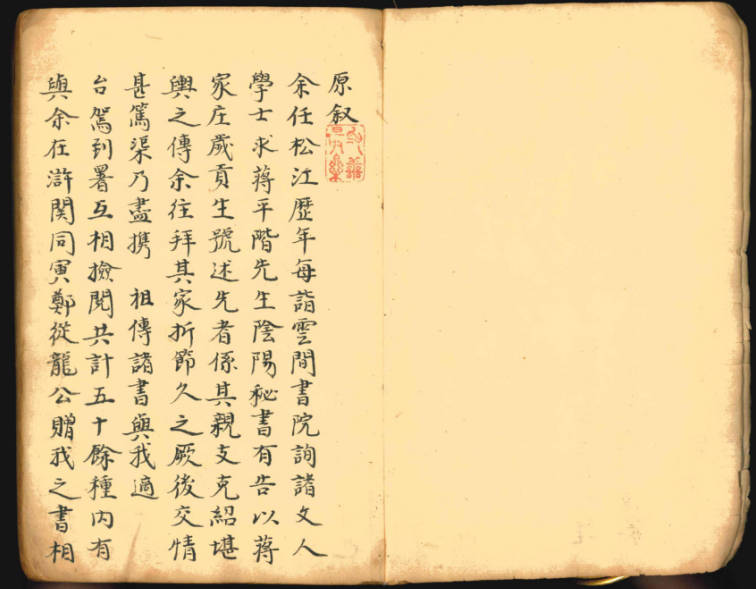 原叙
余任松江歷年每詣雲間書院詢諸文人
學士求蔣平階先生陰陽秘書有告以蔣
家庄歲貢生號述先者係其親支克紹堪
輿之傳余往拜其家折節久之厥後交情
甚篤渠乃盡携　祖傳諸書與我適
台駕到署互相撿閱共計五十餘種內有
與余在滸関同寅鄭從龍公贈我之書相